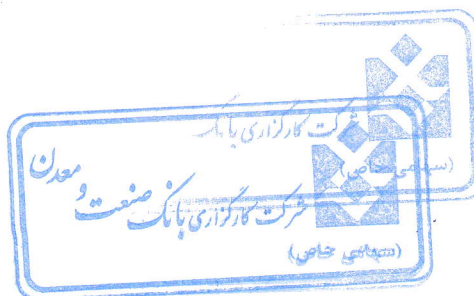 شرکت کارگزاری بانک
(سهامی خاص)
شرکت کارگزاری بانک صنعت و معدن
(سهامی خاص)